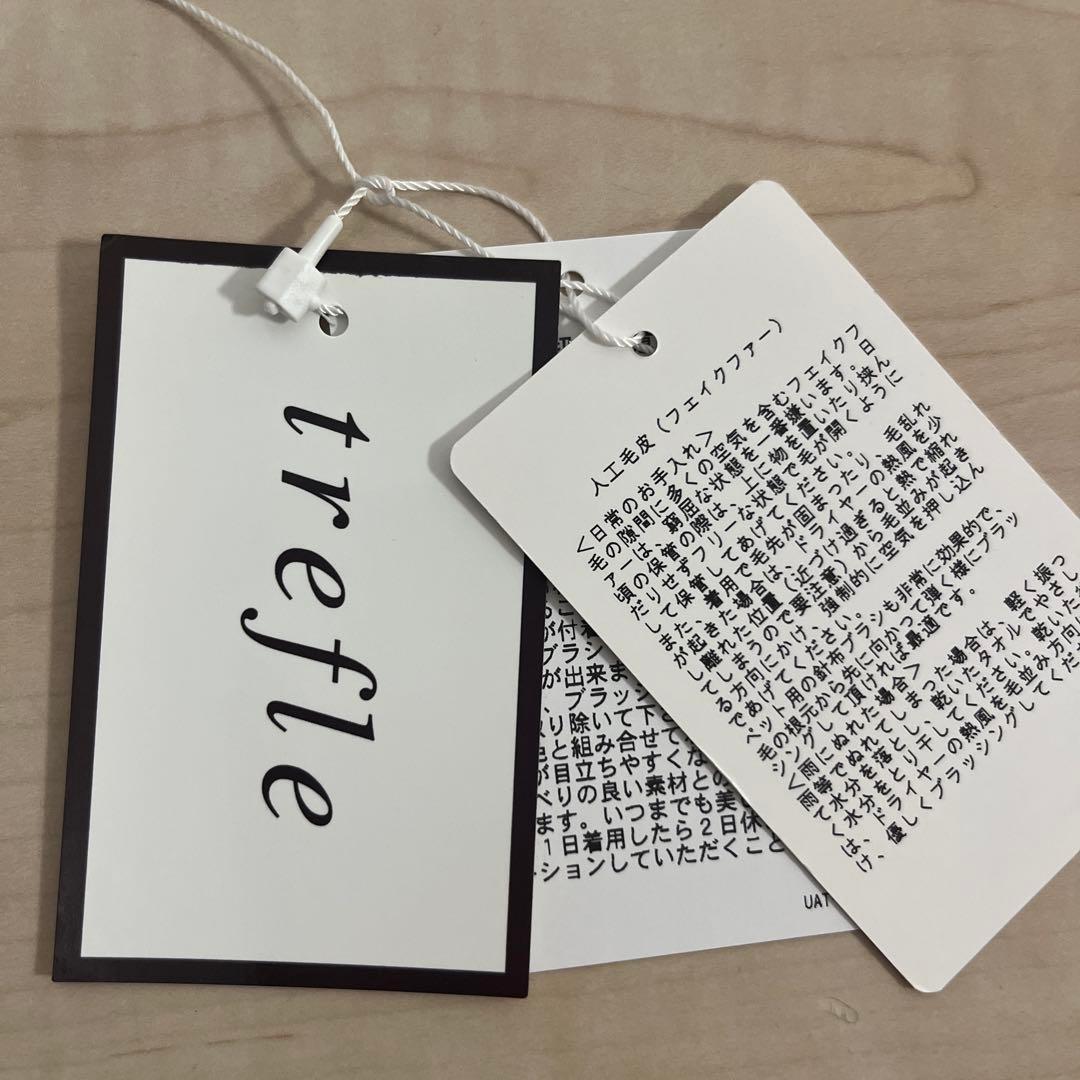 trefle
人工毛皮(フェイクファー)
<日常のお手入れ>
毛の隙間に多くの空気を含むフェイクフ
ァーは、窮屈な状態を一番嫌います。日
頃の保管の際は、上に物を置いたり挟ん
だりせずフリーな状態で毛が開くように
して保管してあげてください。
また、着用で毛先が固まったり、毛乱れ
が起きた場合は、ドライヤーの熱風を少
し離れた位置(近づけ過ぎると熱で縮れ
てしまうので要注意)から毛並みが起き
る方向にかけ、強制的に空気を押し込ん
であげてください。
ペット用の針布ブラシも非常に効果的で、
毛の根元から先に向かって弾く様にブラッ
シングして頂ければ最適です。
<雨にぬれた場合>
雨等でぬれてしまった場合は、軽く振っ
て水分を落とし、乾いたタオルでやさし
く水分をとり干してください。乾いた
は、ドライヤーの熱風を毛並み方向
け、優しくブラッシングしてく
が付
ブラシ
が出来ま
、ブラッシ
り除いて下
と組み合せて
が目立ちやすくな
べりの良い素材との
ます。いつまでも美
1日着用したら2日休
ションしていただくこと
UAT